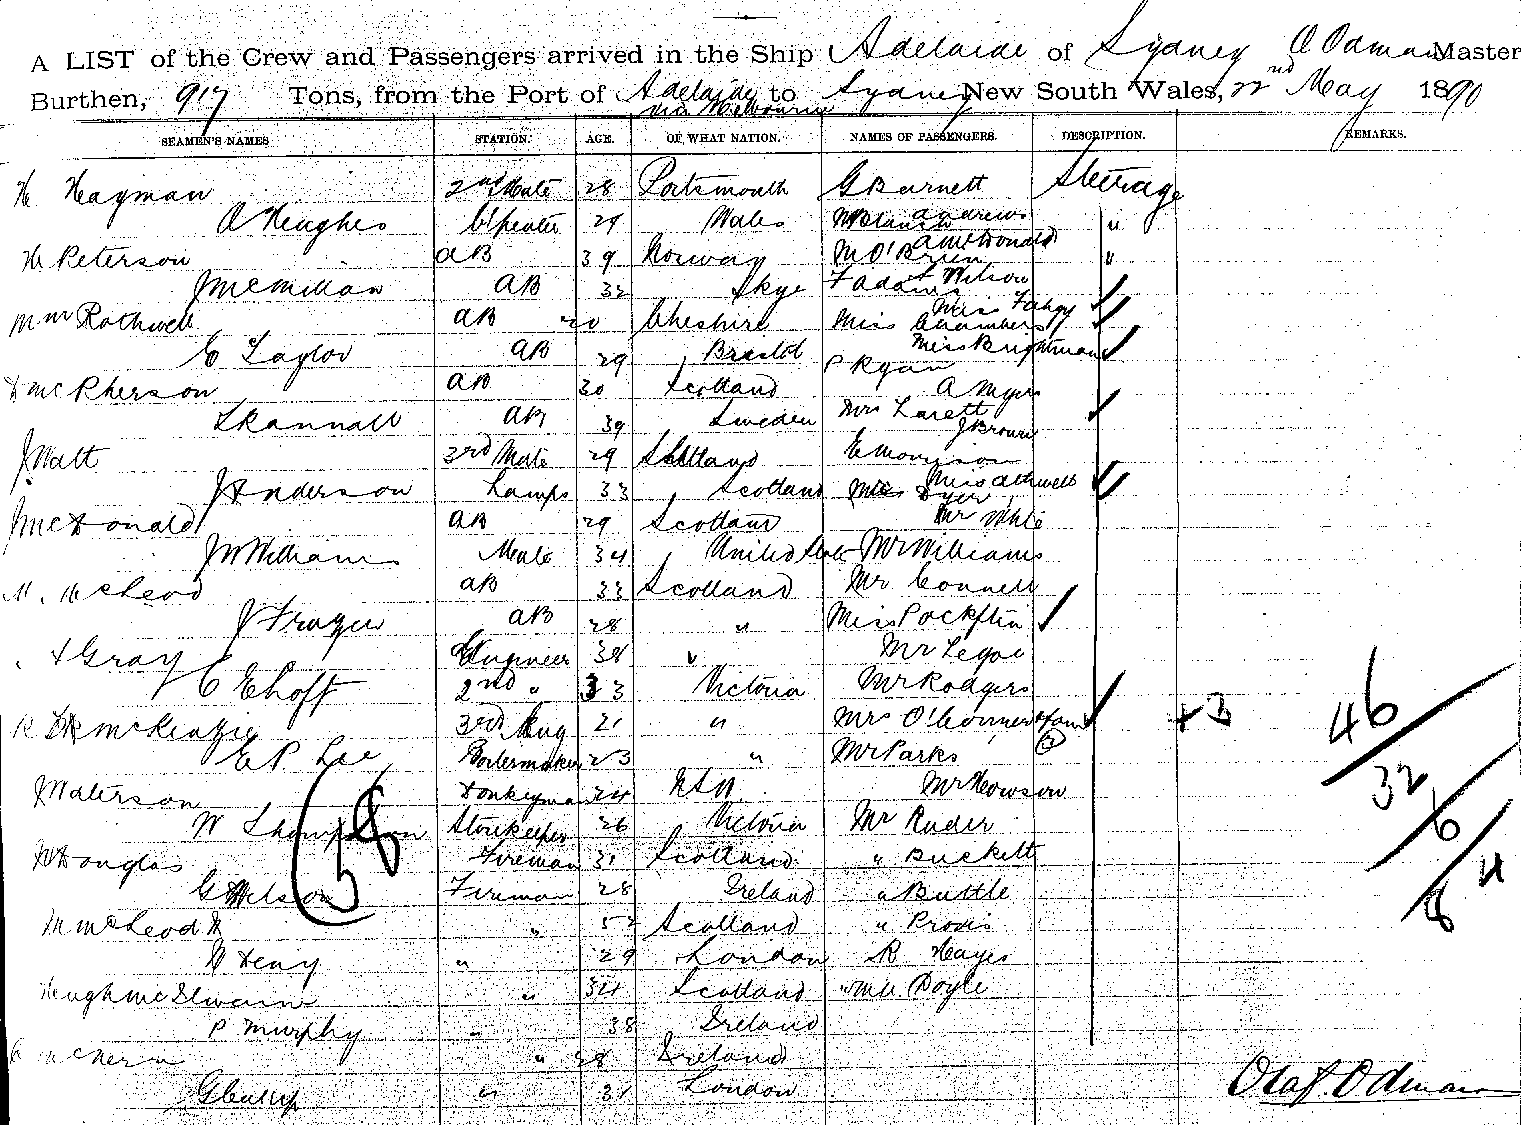 A LIST of the Crew and Passengers arrived in the Ship Adelaide of Sydney O Odman Master
Burthen, 917 Tons, from the Port of Adelaide to Sydney New South Wales, 22nd May 1890
via Melbourne
SEAMEN'S NAMES STATION. AGE. OF WHAT NATION. NAMES OF PASSENGERS. DESCRIPTION. REMARKS.
H Hagman 2nd Mate 28 Portsmouth G Burnett Steerage
O Heughes C'penter 29 Wales Andrews "
H Peterson AB 39 Norway M O'Brien A McDonald "
J McMillan AB 32 Skye F Adams Wilson
Wm Rothwell AB 20 Cheshire Miss Chambers Miss Fahey
E Taylor AB 29 Bristol Miss Brightman
D McPherson AB 30 Scotland P Ryan A Myers
AB 39 Sweden Mrs J Brown
J Watt 3rd Mate 29 Shetland E Morrison
J Anderson Lamps 33 Scotland Dyer Miss
J McDonald AB 29 Scotland Mr White
J W Williams Mate 34 United States Mr Williams
M. McLeod AB 33 Scotland Mr Connell
J Frazer AB 28 " Miss
Gray Engineer 38 " Mr
C Ehoff 2nd " 33 Victoria Mr Rodgers
McKenzie 3rd Eng 21 " Mrs O'Connor & fam + 3 46
E P Lee Boilermaker 23 " Mr Parks
J Waterson Donkeyman 24 NSW. Mr Howson 32
W Thompson Storekeeper 26 Victoria Mr Ruder 6
W Douglas Fireman 31 Scotland " Buckett 4
G Wilson Fireman 28 Ireland " Buttle 8
M McLeod " 52 Scotland "
D Deny " 29 London R Hayes
Heugh McIlwaine " 34 Scotland Wm Doyle
P Murphy " 38 Ireland
" 28 Ireland
" 31 London
Olaf. Odman